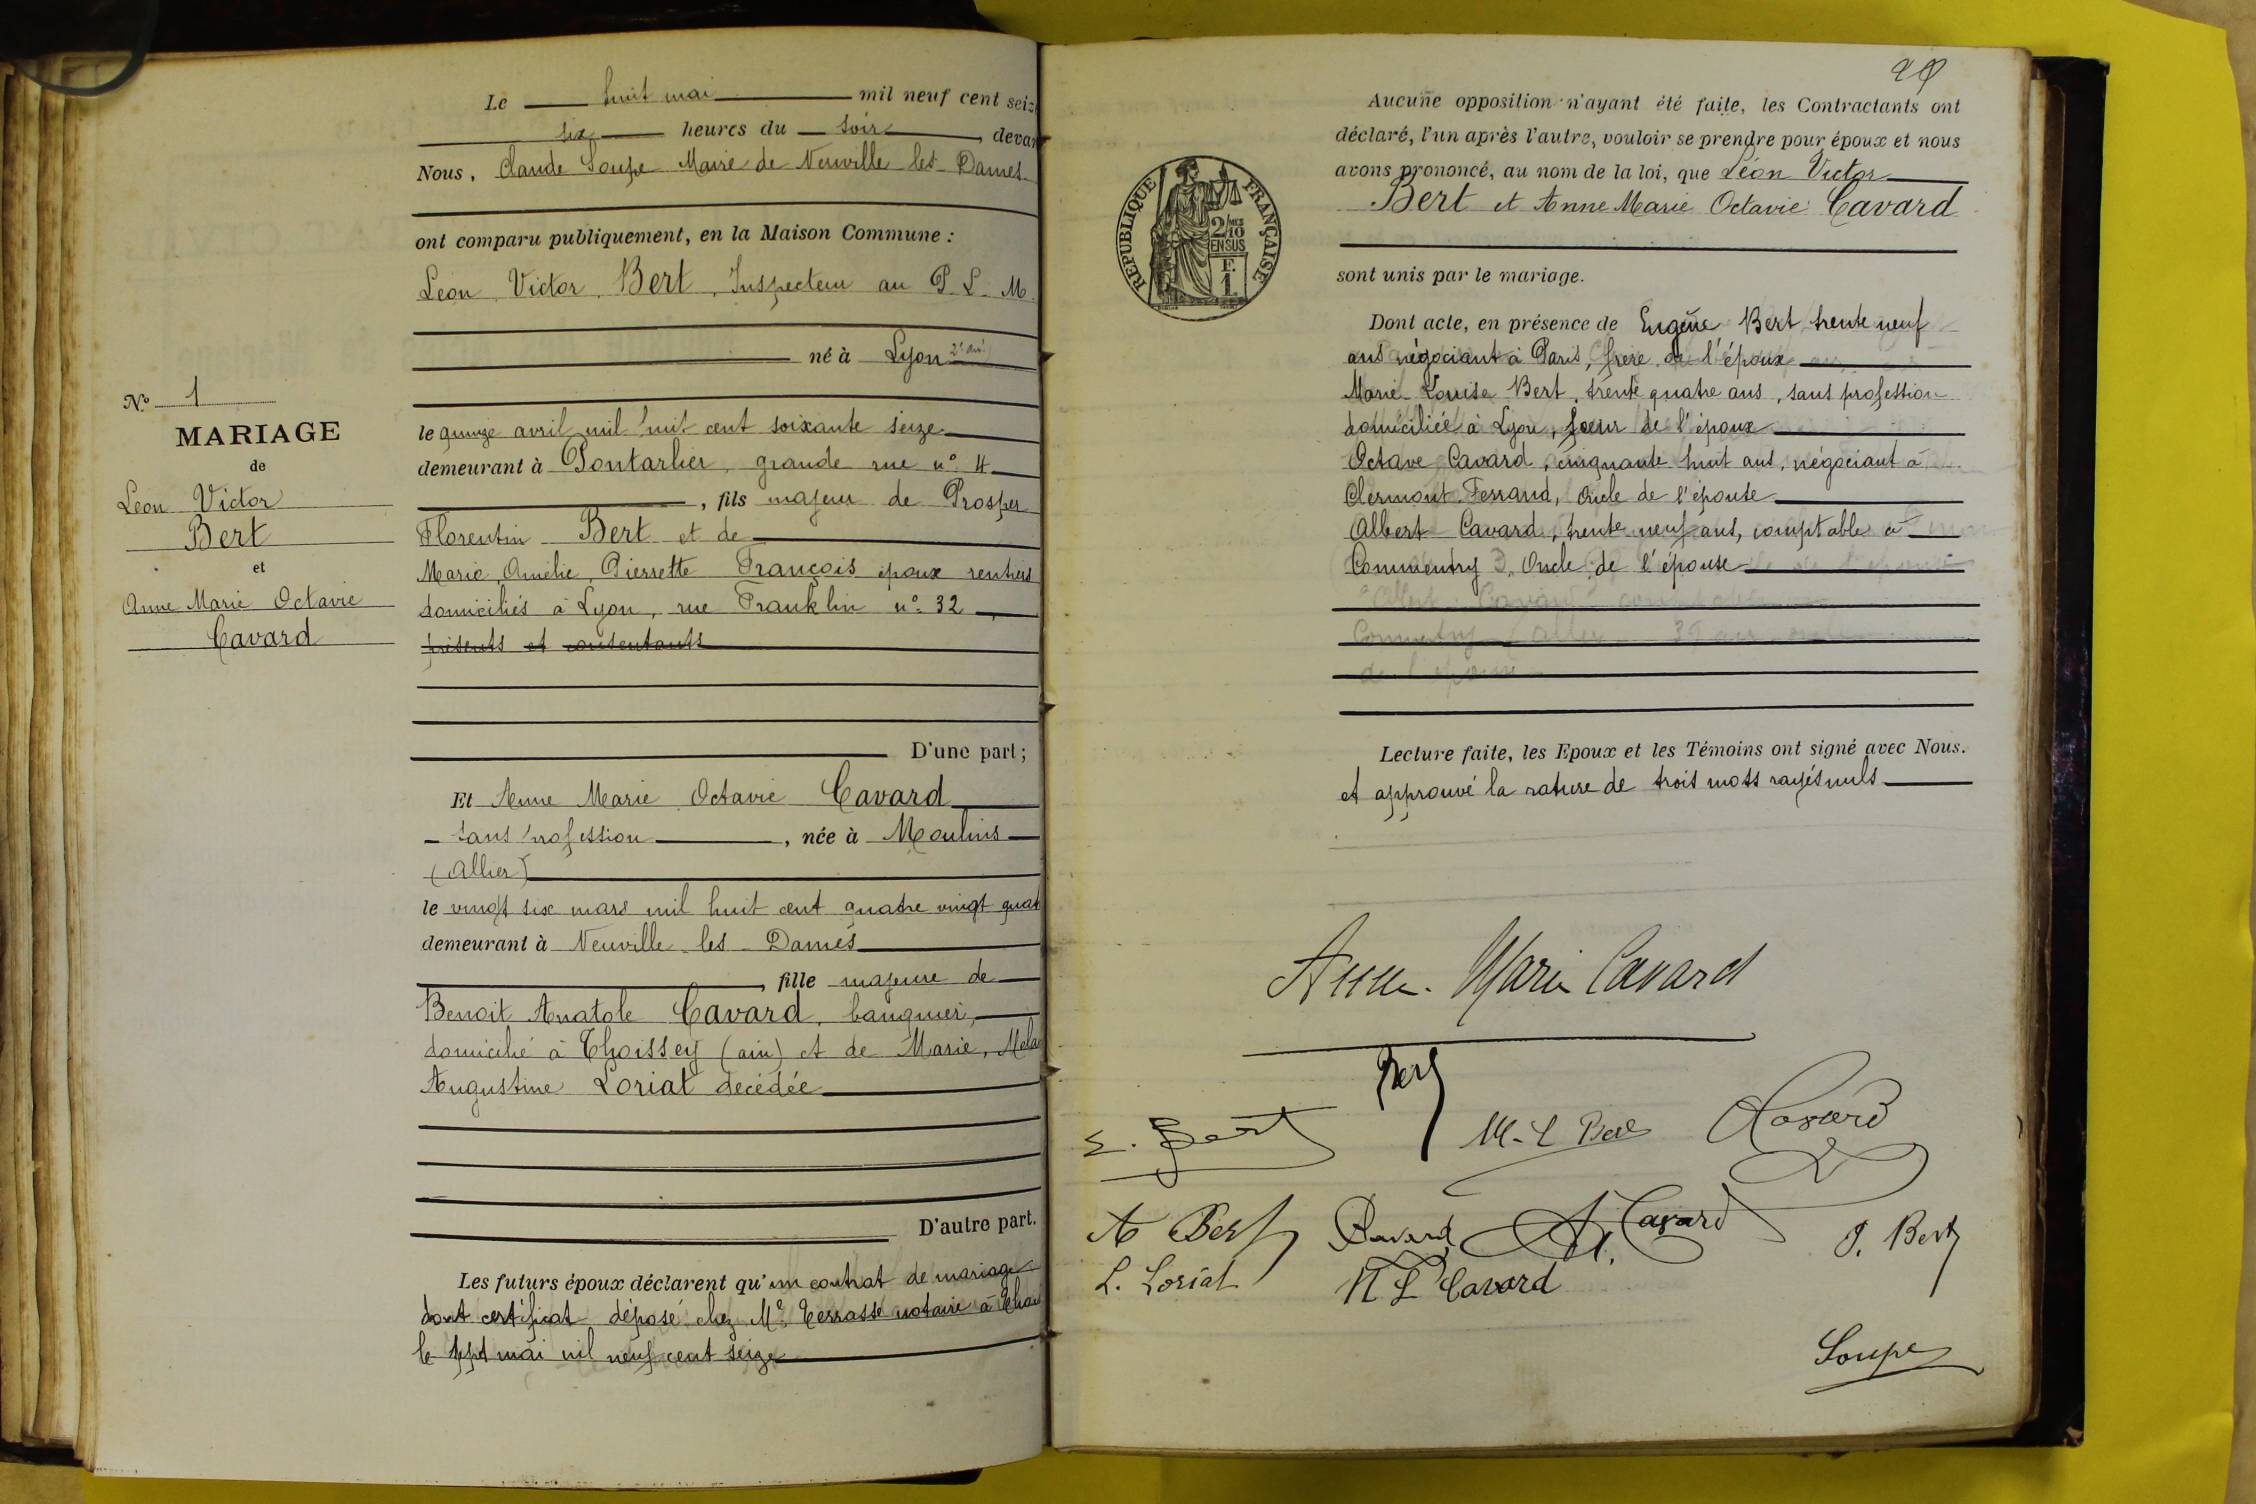 Le huit mai mil neuf cent seiz
six heures du soir, devan
Nous, Claude Soupe Maire de Neuville les Dames
ont comparu publiquement, en la Maison Commune :
Léon Victor Bert, Inspecteur au P. L. M.
né à Lyon 2e arrt
le quinze avril mil huit cent soixante seize
demeurant à Pontarlier, grande rue n° 4
, fils majeur de Prosper
Florentin Bert et de
Marie, Amélie, Pierrette François époux rentiers
domiciliés à Lyon, rue Franklin n° 32,
présents et consentants
D'une part ;
N° 1
MARIAGE
de
Léon Victor
Bert
et
Anne Marie Octavie
Cavard
Et Anne Marie Octavie Cavard
sans profession, née à Moulins
(Allier)
le vingt six mars mil huit cent quatre vingt quat
demeurant à Neuville les Dames
, fille majeure de
Benoit Anatole Cavard, banquier,
domicilié à Thoissey (ain) et de Marie, Mela
Augustine Loriat décédée
D'autre part.
Les futurs époux déclarent qu'un contrat de mariage
dont certificat déposé chez Me Terrasse notaire à Thoi
le sept mai mil neuf cent seize
29
REPUBLIQUE FRANÇAISE
2/10
EN SUS
F.
1
Aucune opposition n'ayant été faite, les Contractants ont
déclaré, l'un après l'autre, vouloir se prendre pour époux et nous
avons prononcé, au nom de la loi, que Léon Victor
Bert et Anne Marie Octavie Cavard
sont unis par le mariage.
Dont acte, en présence de Eugène Bert trente neuf
ans négociant à Paris, frère de l'époux
Marie-Louise Bert, trente quatre ans, sans profession
domiciliée à Lyon, sœur de l'époux
Octave Cavard, cinquante huit ans, négociant à
Clermont-Ferrand, Oncle de l'épouse
Albert Cavard, trente neuf ans, comptable à
Commentry, Oncle de l'épouse
Lecture faite, les Epoux et les Témoins ont signé avec Nous.
et approuvé la rature de trois mots rayés nuls
Anne-Marie Cavard
Bert
E. Bert
M-L Bert
O Cavard
A Bert
Cavard
A. Cavard
P. Bert
L. Loriat
M L Cavard
Soupe